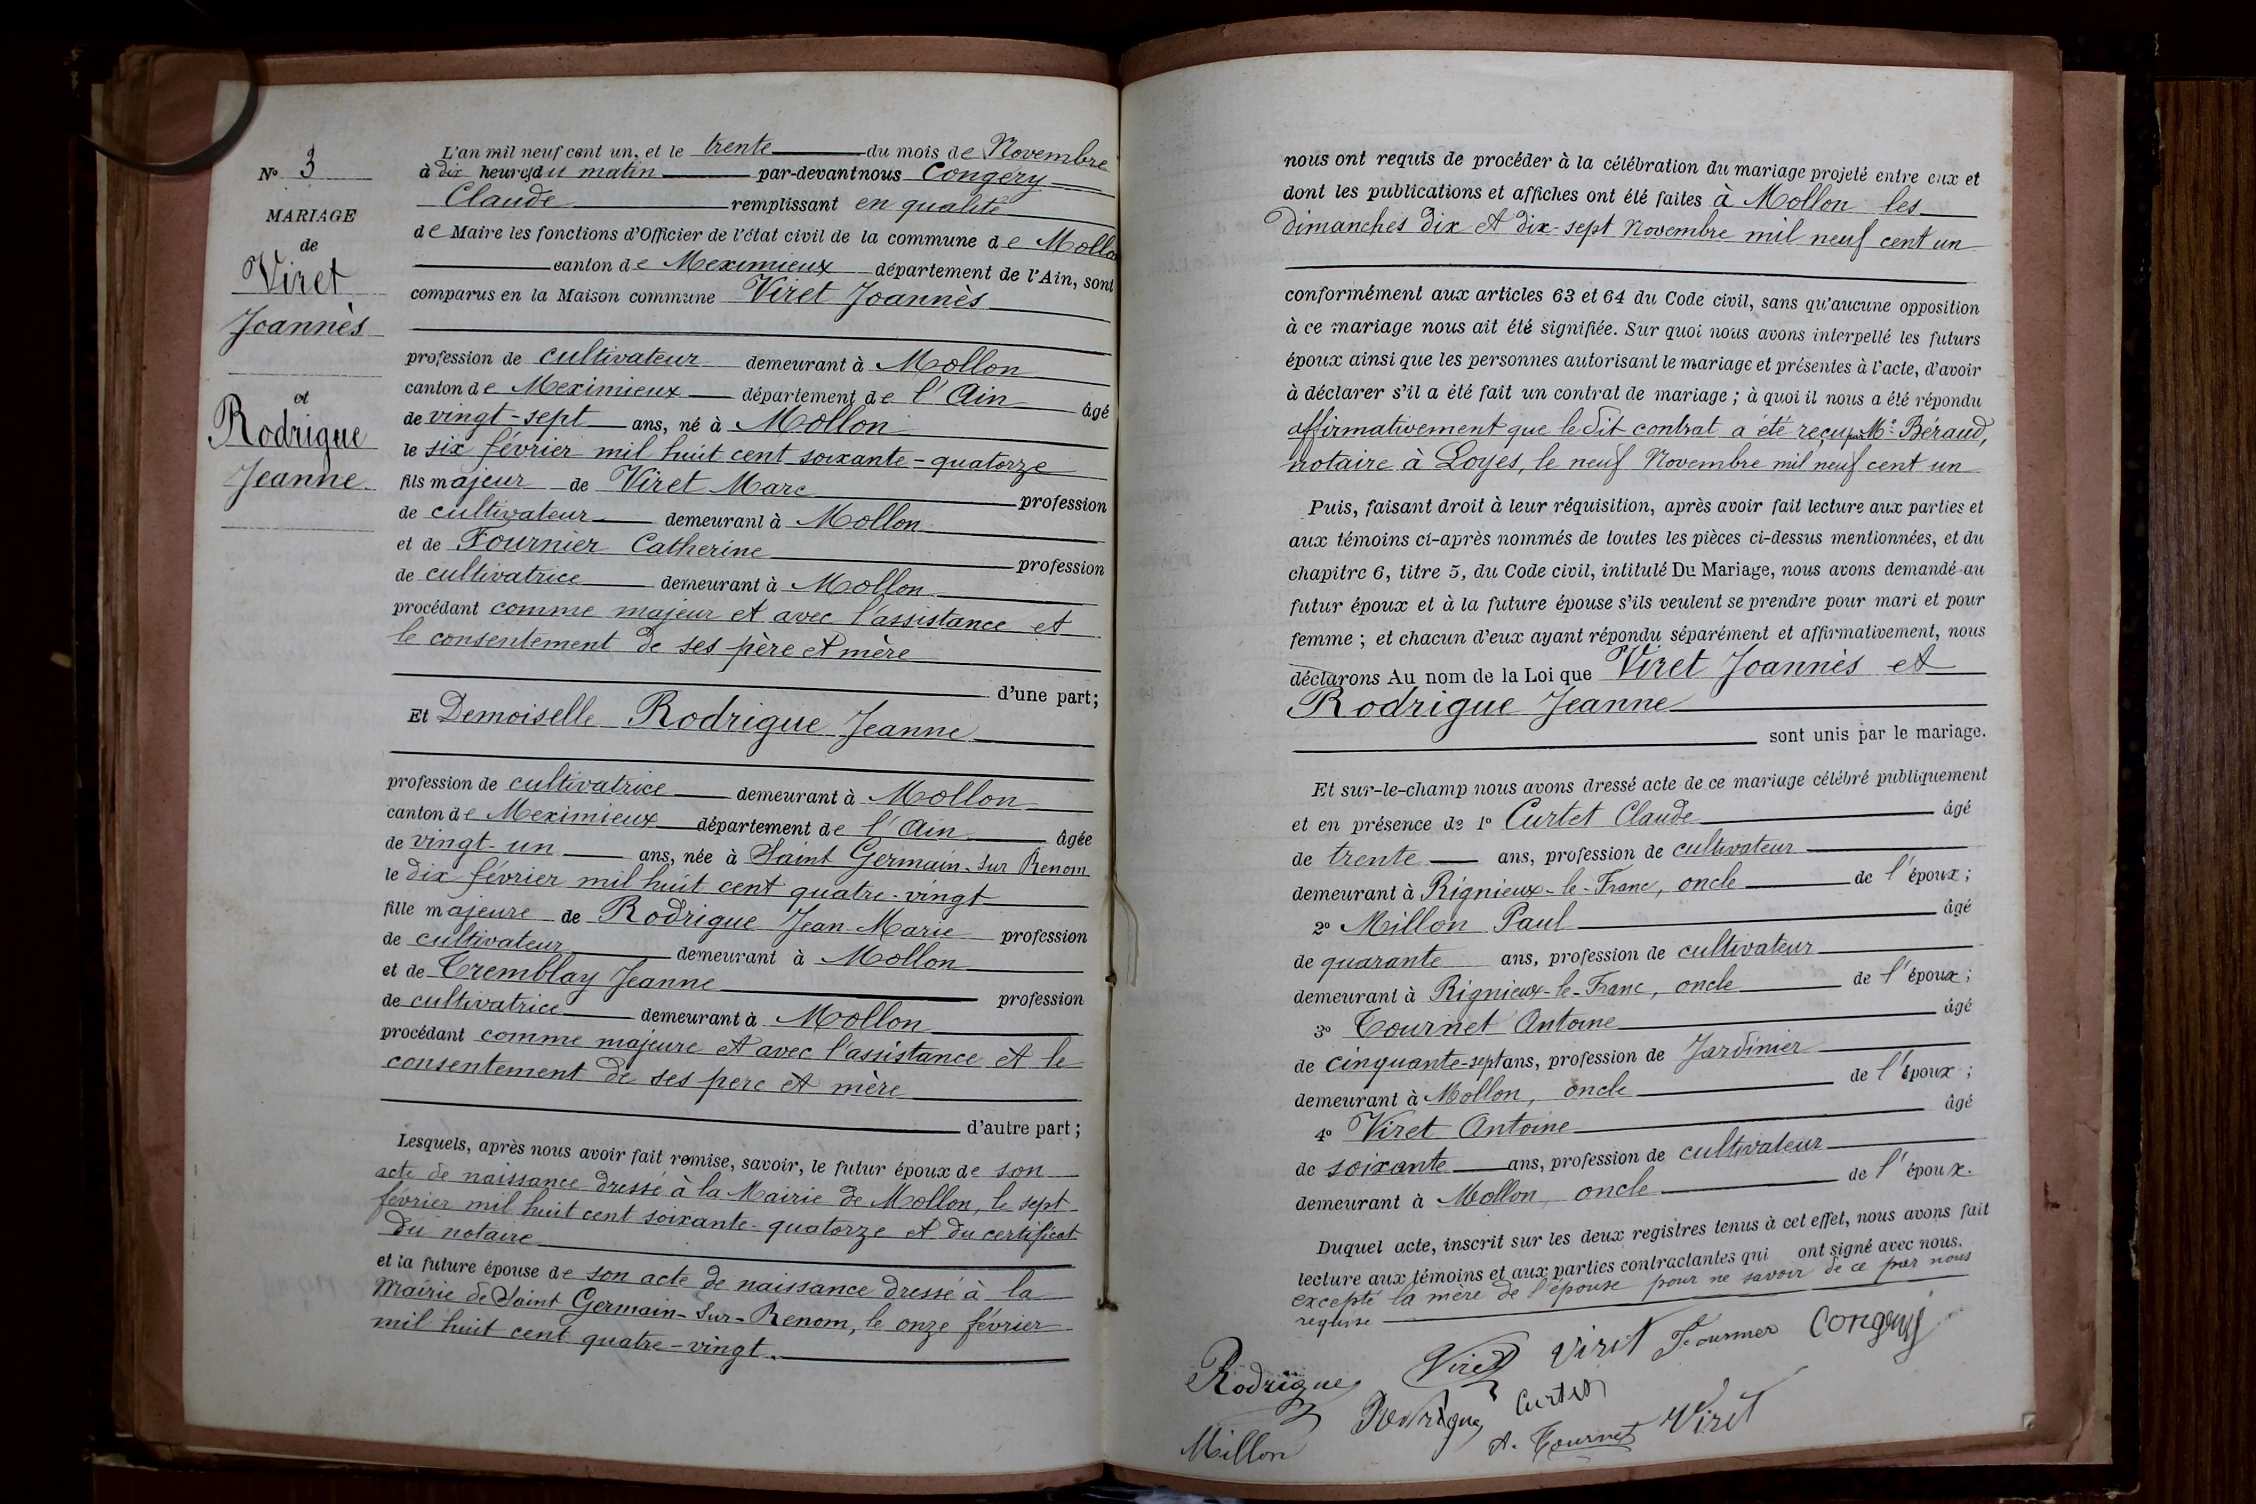 N° 3
MARIAGE
de
Viret
Joannès
et
Rodrigue
Jeanne
L'an mil neuf cent un, et le trente du mois de Novembre
à dix heures du matin par-devant nous Congery
Claude remplissant en qualité
de Maire les fonctions d'Officier de l'état civil de la commune de Mollon
canton de Meximieux département de l'Ain, sont
comparus en la Maison commune Viret Joannès
profession de cultivateur demeurant à Mollon
canton de Meximieux département de l'Ain âgé
de vingt-sept ans, né à Mollon
le six février mil huit cent soixante-quatorze
fils majeur de Viret Marc profession
de cultivateur demeurant à Mollon
et de Fournier Catherine profession
de cultivatrice demeurant à Mollon
procédant comme majeur et avec l'assistance et
le consentement de ses père et mère
d'une part;
Et Demoiselle Rodrigue Jeanne
profession de cultivatrice demeurant à Mollon
canton de Meximieux département de l'Ain âgée
de vingt-un ans, née à Saint Germain-sur Renom
le dix février mil huit cent quatre-vingt
fille majeure de Rodrigue Jean-Marie profession
de cultivateur demeurant à Mollon
et de Tremblay Jeanne profession
de cultivatrice demeurant à Mollon
procédant comme majeure et avec l'assistance et le
consentement de ses pere et mère
d'autre part;
Lesquels, après nous avoir fait remise, savoir, le futur époux de son
acte de naissance dressé à la Mairie de Mollon, le sept
février mil huit cent soixante-quatorze et du certificat
du notaire
et la future épouse de son acte de naissance dressé à la
Mairie de Saint Germain-Sur-Renom, le onze février
mil huit cent quatre-vingt.
nous ont requis de procéder à la célébration du mariage projeté entre eux et
dont les publications et affiches ont été faites à Mollon les
dimanches dix et dix-sept Novembre mil neuf cent un
conformément aux articles 63 et 64 du Code civil, sans qu'aucune opposition
à ce mariage nous ait été signifiée. Sur quoi nous avons interpellé les futurs
époux ainsi que les personnes autorisant le mariage et présentes à l'acte, d'avoir
à déclarer s'il a été fait un contrat de mariage; à quoi il nous a été répondu
affirmativement que le dit contrat a été reçu par Me Béraud,
notaire à Loyes, le neuf Novembre mil neuf cent un
Puis, faisant droit à leur réquisition, après avoir fait lecture aux parties et
aux témoins ci-après nommés de toutes les pièces ci-dessus mentionnées, et du
chapitre 6, titre 5, du Code civil, intitulé Du Mariage, nous avons demandé au
futur époux et à la future épouse s'ils veulent se prendre pour mari et pour
femme; et chacun d'eux ayant répondu séparément et affirmativement, nous
déclarons Au nom de la Loi que Viret Joannès et
Rodrigue Jeanne
sont unis par le mariage.
Et sur-le-champ nous avons dressé acte de ce mariage célébré publiquement
et en présence de 1° Curtet Claude âgé
de trente ans, profession de cultivateur
demeurant à Rignieux-le-Franc, oncle de l'époux;
2° Millon Paul âgé
de quarante ans, profession de cultivateur
demeurant à Rignieux-le-Franc, oncle de l'époux;
3° Tournet Antoine âgé
de cinquante-sept ans, profession de Jardinier
demeurant à Mollon, oncle de l'époux;
4° Viret Antoine âgé
de soixante ans, profession de cultivateur
demeurant à Mollon, oncle de l'époux.
Duquel acte, inscrit sur les deux registres tenus à cet effet, nous avons fait
lecture aux témoins et aux parties contractantes qui ont signé avec nous.
excepté la mère de l'épouse pour ne savoir de ce par nous
requise
Rodrigue Viret Viret Fournier Congery
Rodrigue Curtet
Millon A. Tournet Viret